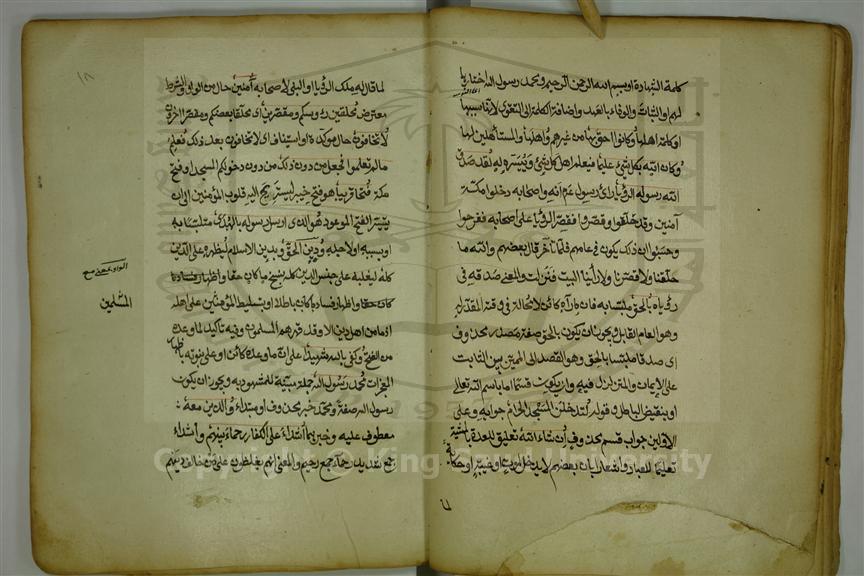 كلمة الشهادة او بسم الله الرحمن الرحيم ومحمد رسول الله اختارها
لهم والثبات والوفاء بالعهد واضافة الكلمة الى التقوى لانها سببها
او كلمة اهلها وكانوا احق بها من غيرهم واهلها والمستأهلين لها
وكان الله بكل شئ عليما فيعلم اهل كل شئ وييسره له لقد صدق
الله رسوله الرؤيا رأى رسول الله انه واصحابه دخلوا مكة
آمنين وقد حلقوا وقصروا فقص الرؤيا على اصحابه ففرحوا
وحسبوا ان ذلك يكون في عامهم فلما تأخر قال بعضهم والله ما
حلقنا ولا قصرنا ولا رأينا البيت فنزلت والمعنى صدقه في
رؤياه بالحق ملتبسا به فان ما رآه كائن لا محالة في وقته المقدر له
وهو العام القابل ويجوز ان يكون بالحق صفة مصدر محذوف
اى صدقا ملتبسا بالحق وهو القصد الى التمييز بين الثابت
على الايمان والمتزلزل فيه وان يكون قسما اما باسم الله تعالى
او بنقيض الباطل وقوله لتدخلن المسجد الحرام جوابه وعلى
الاولين جواب قسم محذوف ان شاء الله تعليق للعدة بالمشية
تعليما للعباد واشعارا بان بعضهم لا يدخل لموت او غيبة او حكاية
لما
١٨
لما قال له ملك الرؤيا او النبى لاصحابه آمنين حال من الواو والشرط
معترض محلقين رؤسكم ومقصرين اى محلقا بعضكم ومقصرا آخرون
لا تخافون حال مؤكدة او استيناف اى لا تخافون بعد ذلك فعلم
ما لم تعلموا فجعل من دون ذلك من دون دخولكم المسجد او فتح
مكة فتحا قريبا هو فتح خيبر ليستريح اليه قلوب المؤمنين الى ان
يتيسر الفتح الموعود هو الذى ارسل رسوله بالهدى متلبسا به
او بسببه او لاجله ودين الحق وبدين الاسلام ليظهره على الدين
كله ليغلبه على جنس الدين كله بنسخ ما كان حقا واظهار فساد ما
كان باطلا او بتسليط المؤمنين على اهله
اذ ما من اهل دين الا وقد قهرهم المسلمون وفيه تأكيد لما وعده
من الفتح وكفى بالله شهيدا على ان ما وعده كائن او على نبوته باظهار
المعجزات محمد رسول الله جملة مبينة للمشهود به ويجوز ان يكون
رسول الله صفة ومحمد خبر محذوف او مبتدأ والذين معه
معطوف عليه وخبرهما اشداء على الكفار رحماء بينهم واشداء
جمع شديد ورحماء جمع رحيم والمعنى انهم يغلظون على من خالف دينهم
المسلمين
Copyright © King Saud University
1957